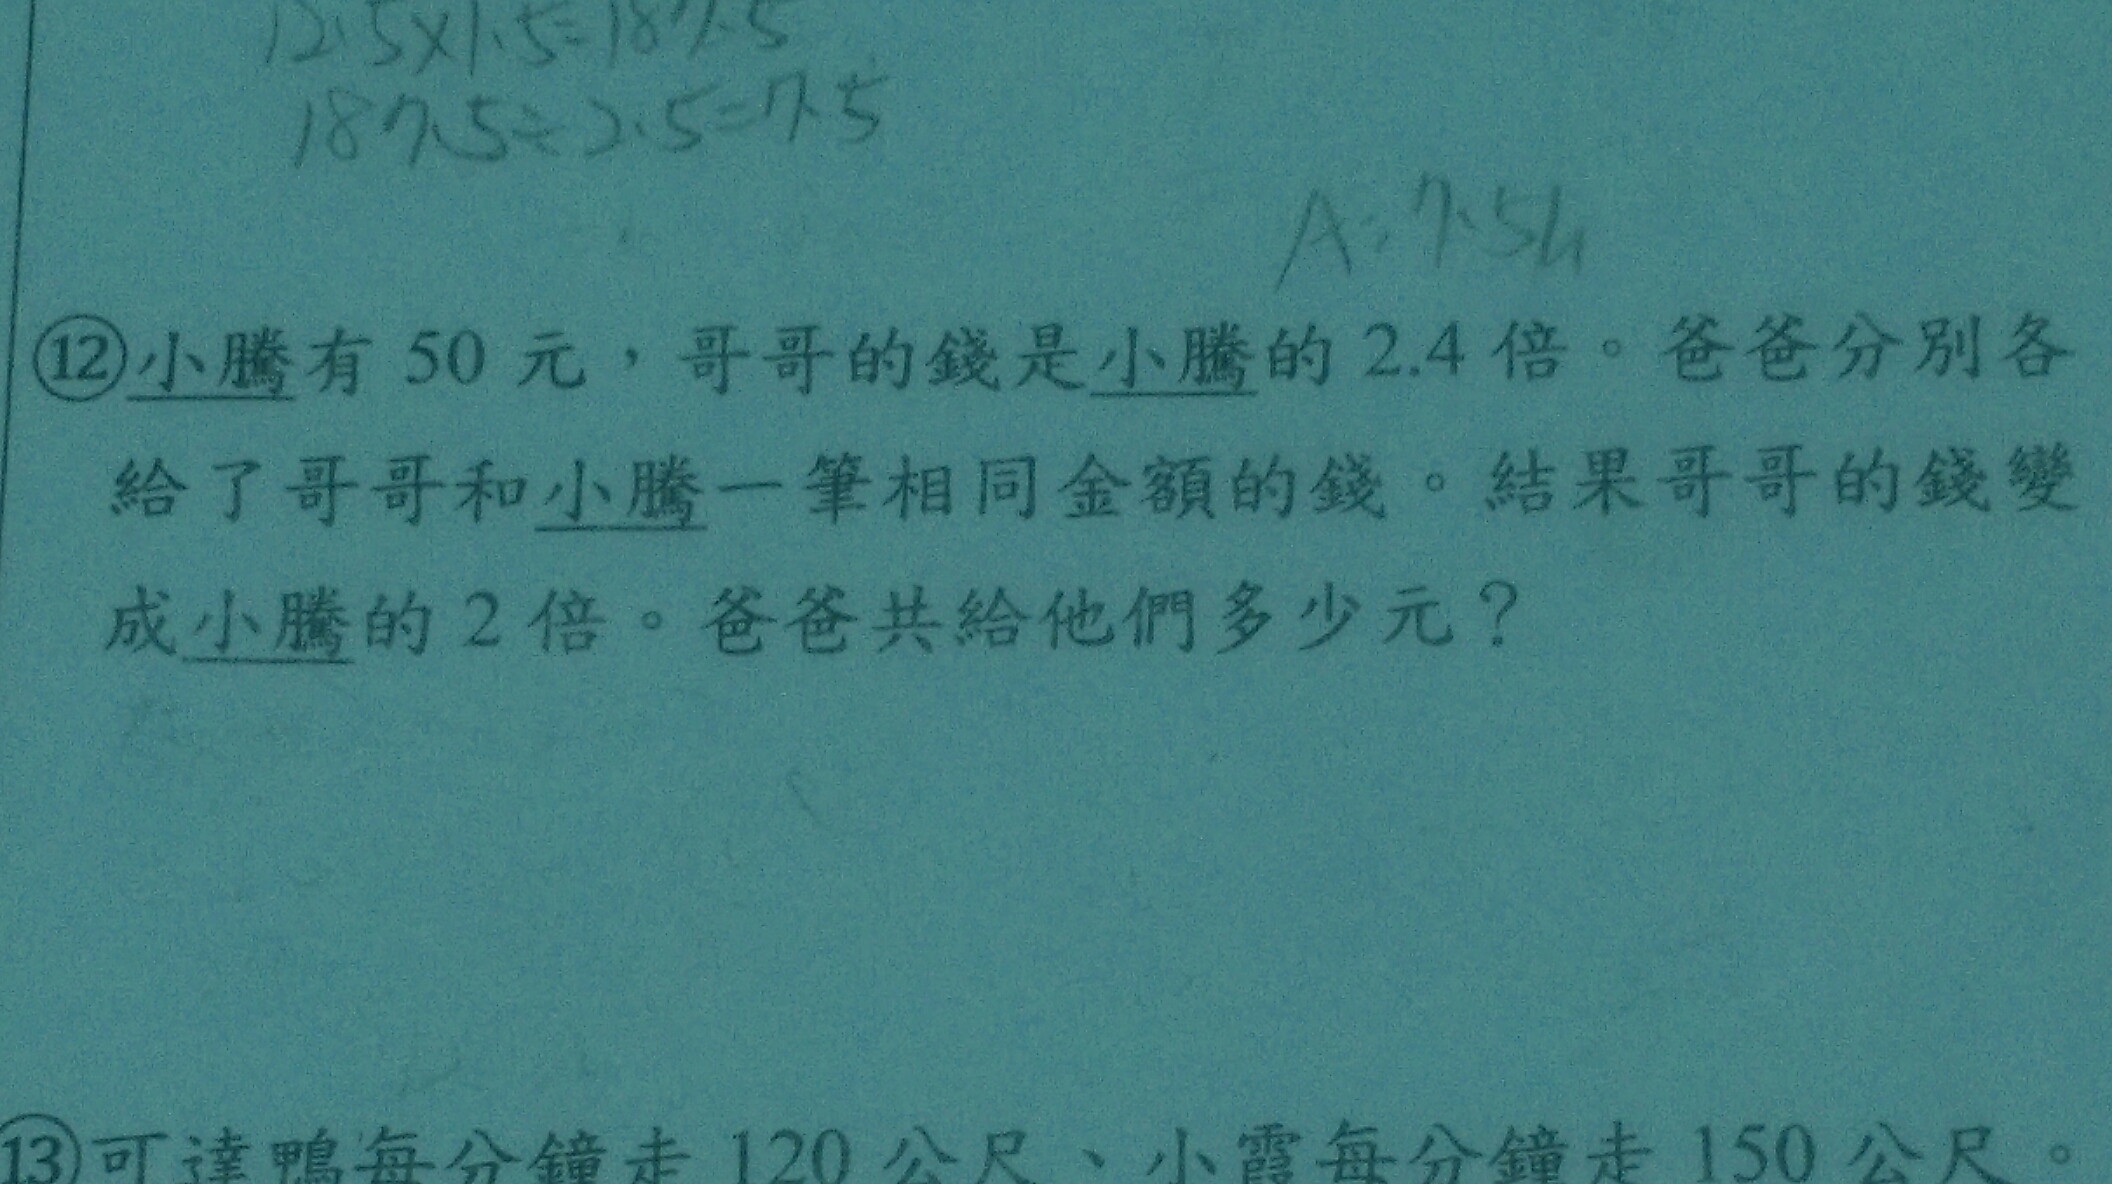 12.5×1.5=187.5
187.5÷2.5=7.5
A:7.5h
⑫小騰有 50 元，哥哥的錢是小騰的 2.4 倍。爸爸分別各
給了哥哥和小騰一筆相同金額的錢。結果哥哥的錢變
成小騰的 2 倍。爸爸共給他們多少元？
⑬可達鴨每分鐘走 120 公尺、小霞每分鐘走 150 公尺。